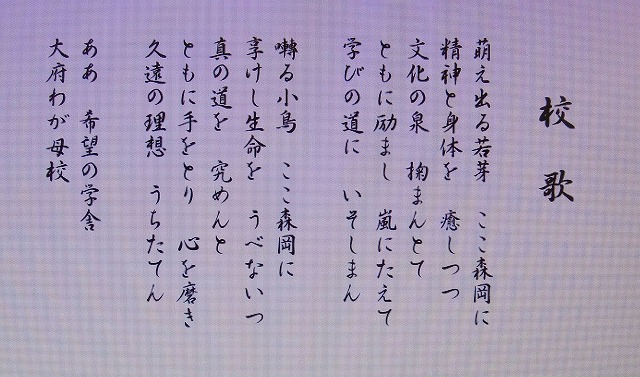 校歌
萌え出る若芽　ここ森岡に
精神と身体を　癒しつつ
文化の泉　掬まんとて
ともに励まし　嵐にたえて
学びの道に　いそしまん
囀る小鳥　ここ森岡に
享けし生命を　うべないつつ
真の道を　究めんと
ともに手をとり　心を磨き
久遠の理想　うちたてん
ああ　希望の学舎
大府わが母校